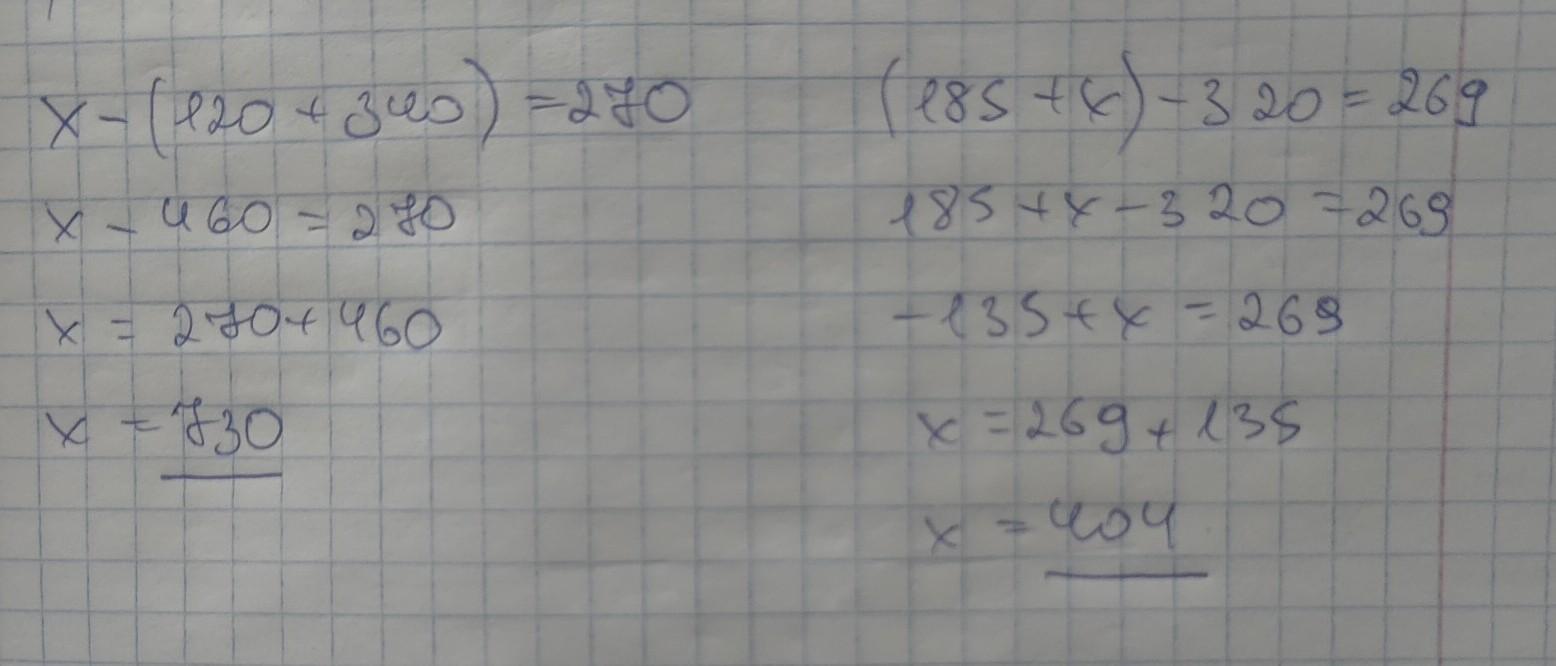 x - (120 + 340) = 270
x - 460 = 270
x = 270 + 460
x = 730
(185 + x) - 320 = 269
185 + x - 320 = 269
-135 + x = 269
x = 269 + 135
x = 404